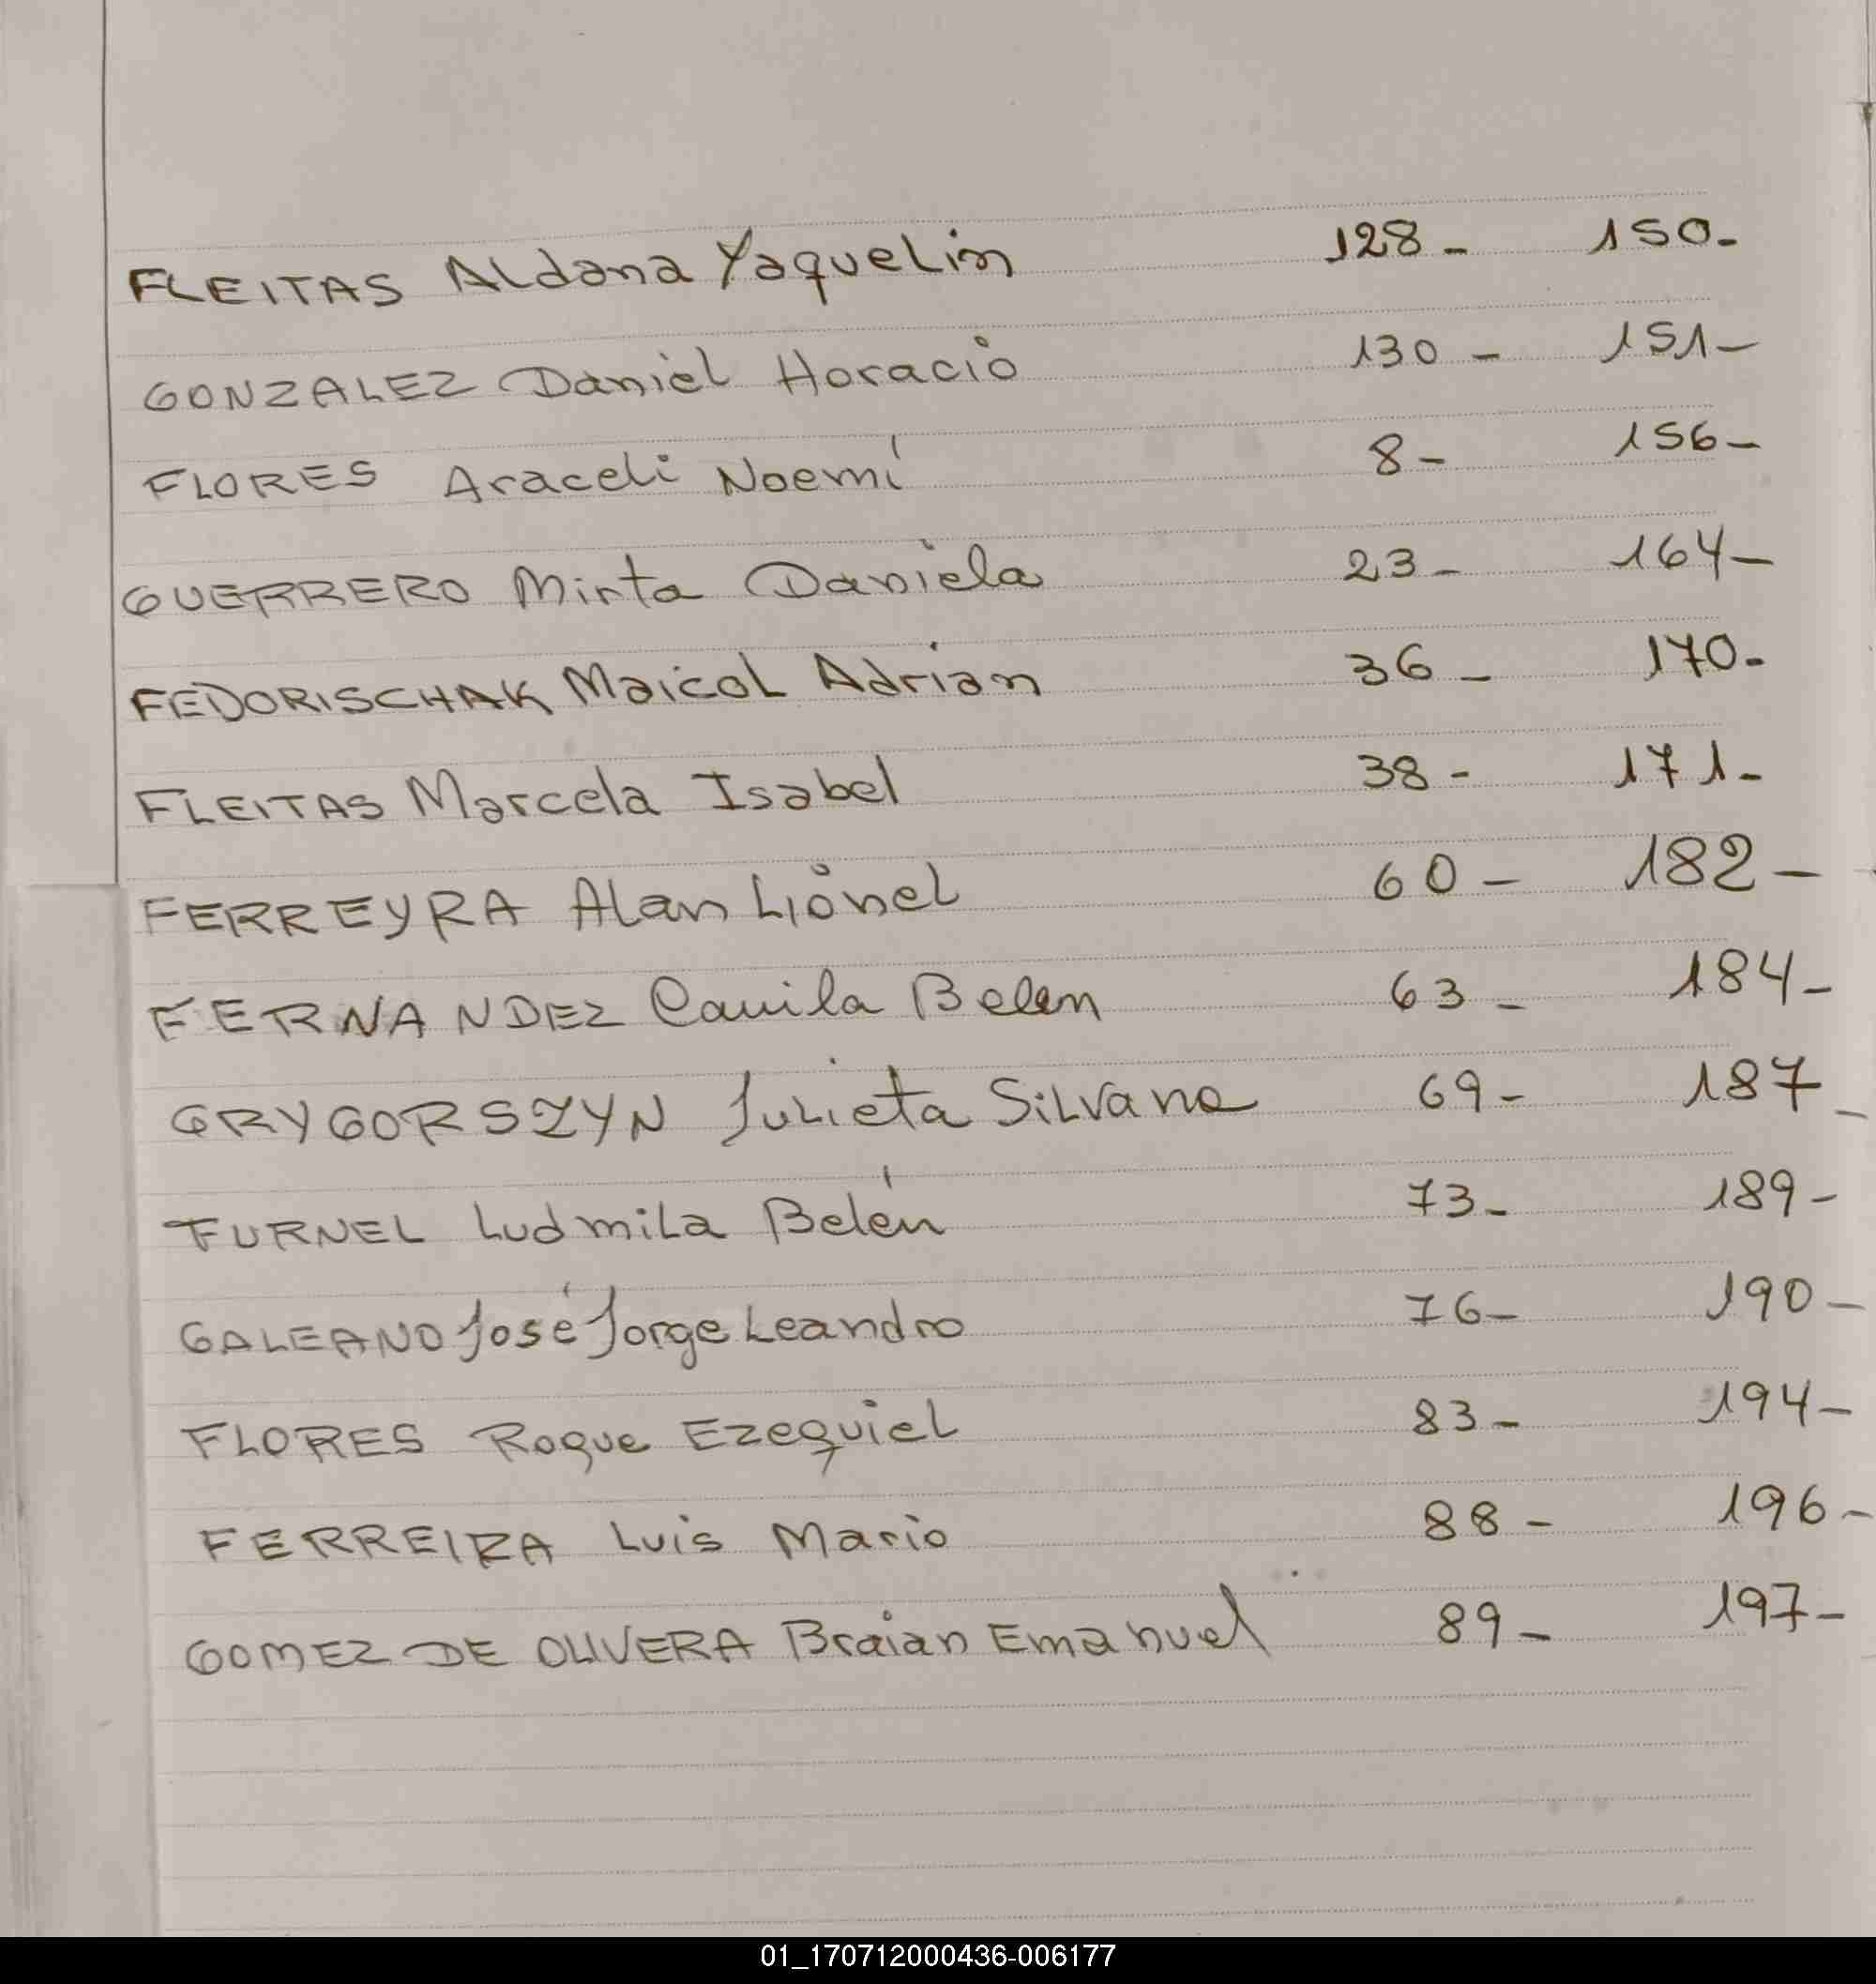 FLEITAS Aldana Yaquelin 128- 150-
GONZALEZ Daniel Horacio 130- 151-
FLORES Araceli Noemí 8- 156-
GUERRERO Mirta Daniela 23- 164-
FEDORISCHAK Maicol Adrian 36- 170-
FLEITAS Marcela Isabel 38- 171-
FERREYRA Alan Lionel 60- 182-
FERNANDEZ Camila Belen 63- 184-
GRYGORSZYN Julieta Silvana 69- 187-
FURNEL Ludmila Belén 73- 189-
GALEANO José Jorge Leandro 76- 190-
FLORES Roque Ezequiel 83- 194-
FERREIRA Luis Mario 88- 196-
GOMEZ DE OLIVERA Braian Emanuel 89- 197-
01_170712000436-006177